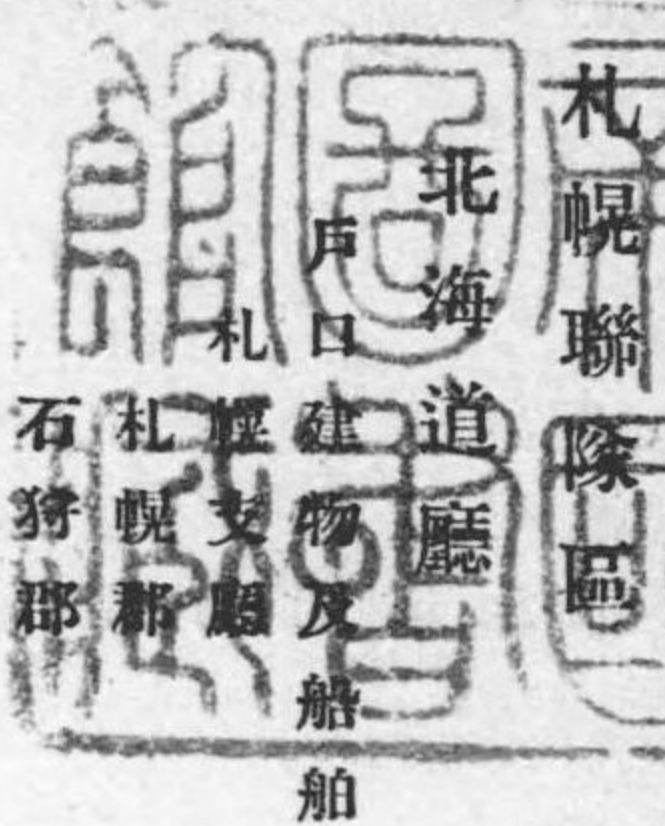 札幌聯隊區
北海道廳
戶口建物及船舶
札幌支廳
札幌郡
石狩郡